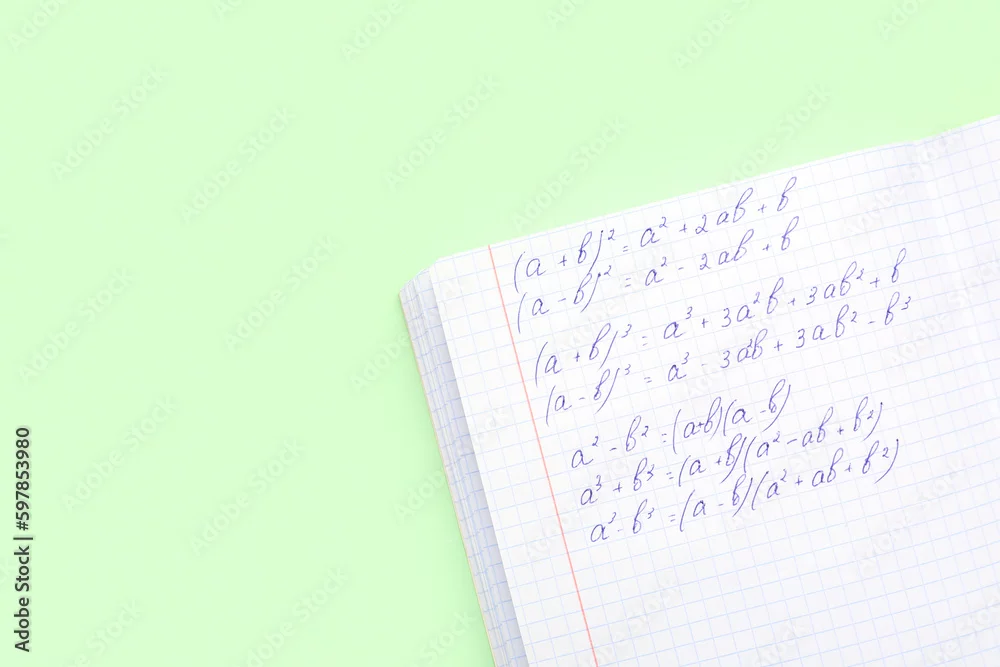 (a + b)² = a² + 2ab + b
(a - b)² = a² - 2ab + b
(a + b)³ = a³ + 3a²b + 3ab² + b
(a - b)³ = a³ - 3a²b + 3ab² - b³
a² - b² = (a+b)(a-b)
a³ + b³ = (a + b)(a² - ab + b²)
a³ - b³ = (a - b)(a² + ab + b²)
Adobe Stock | #597853980